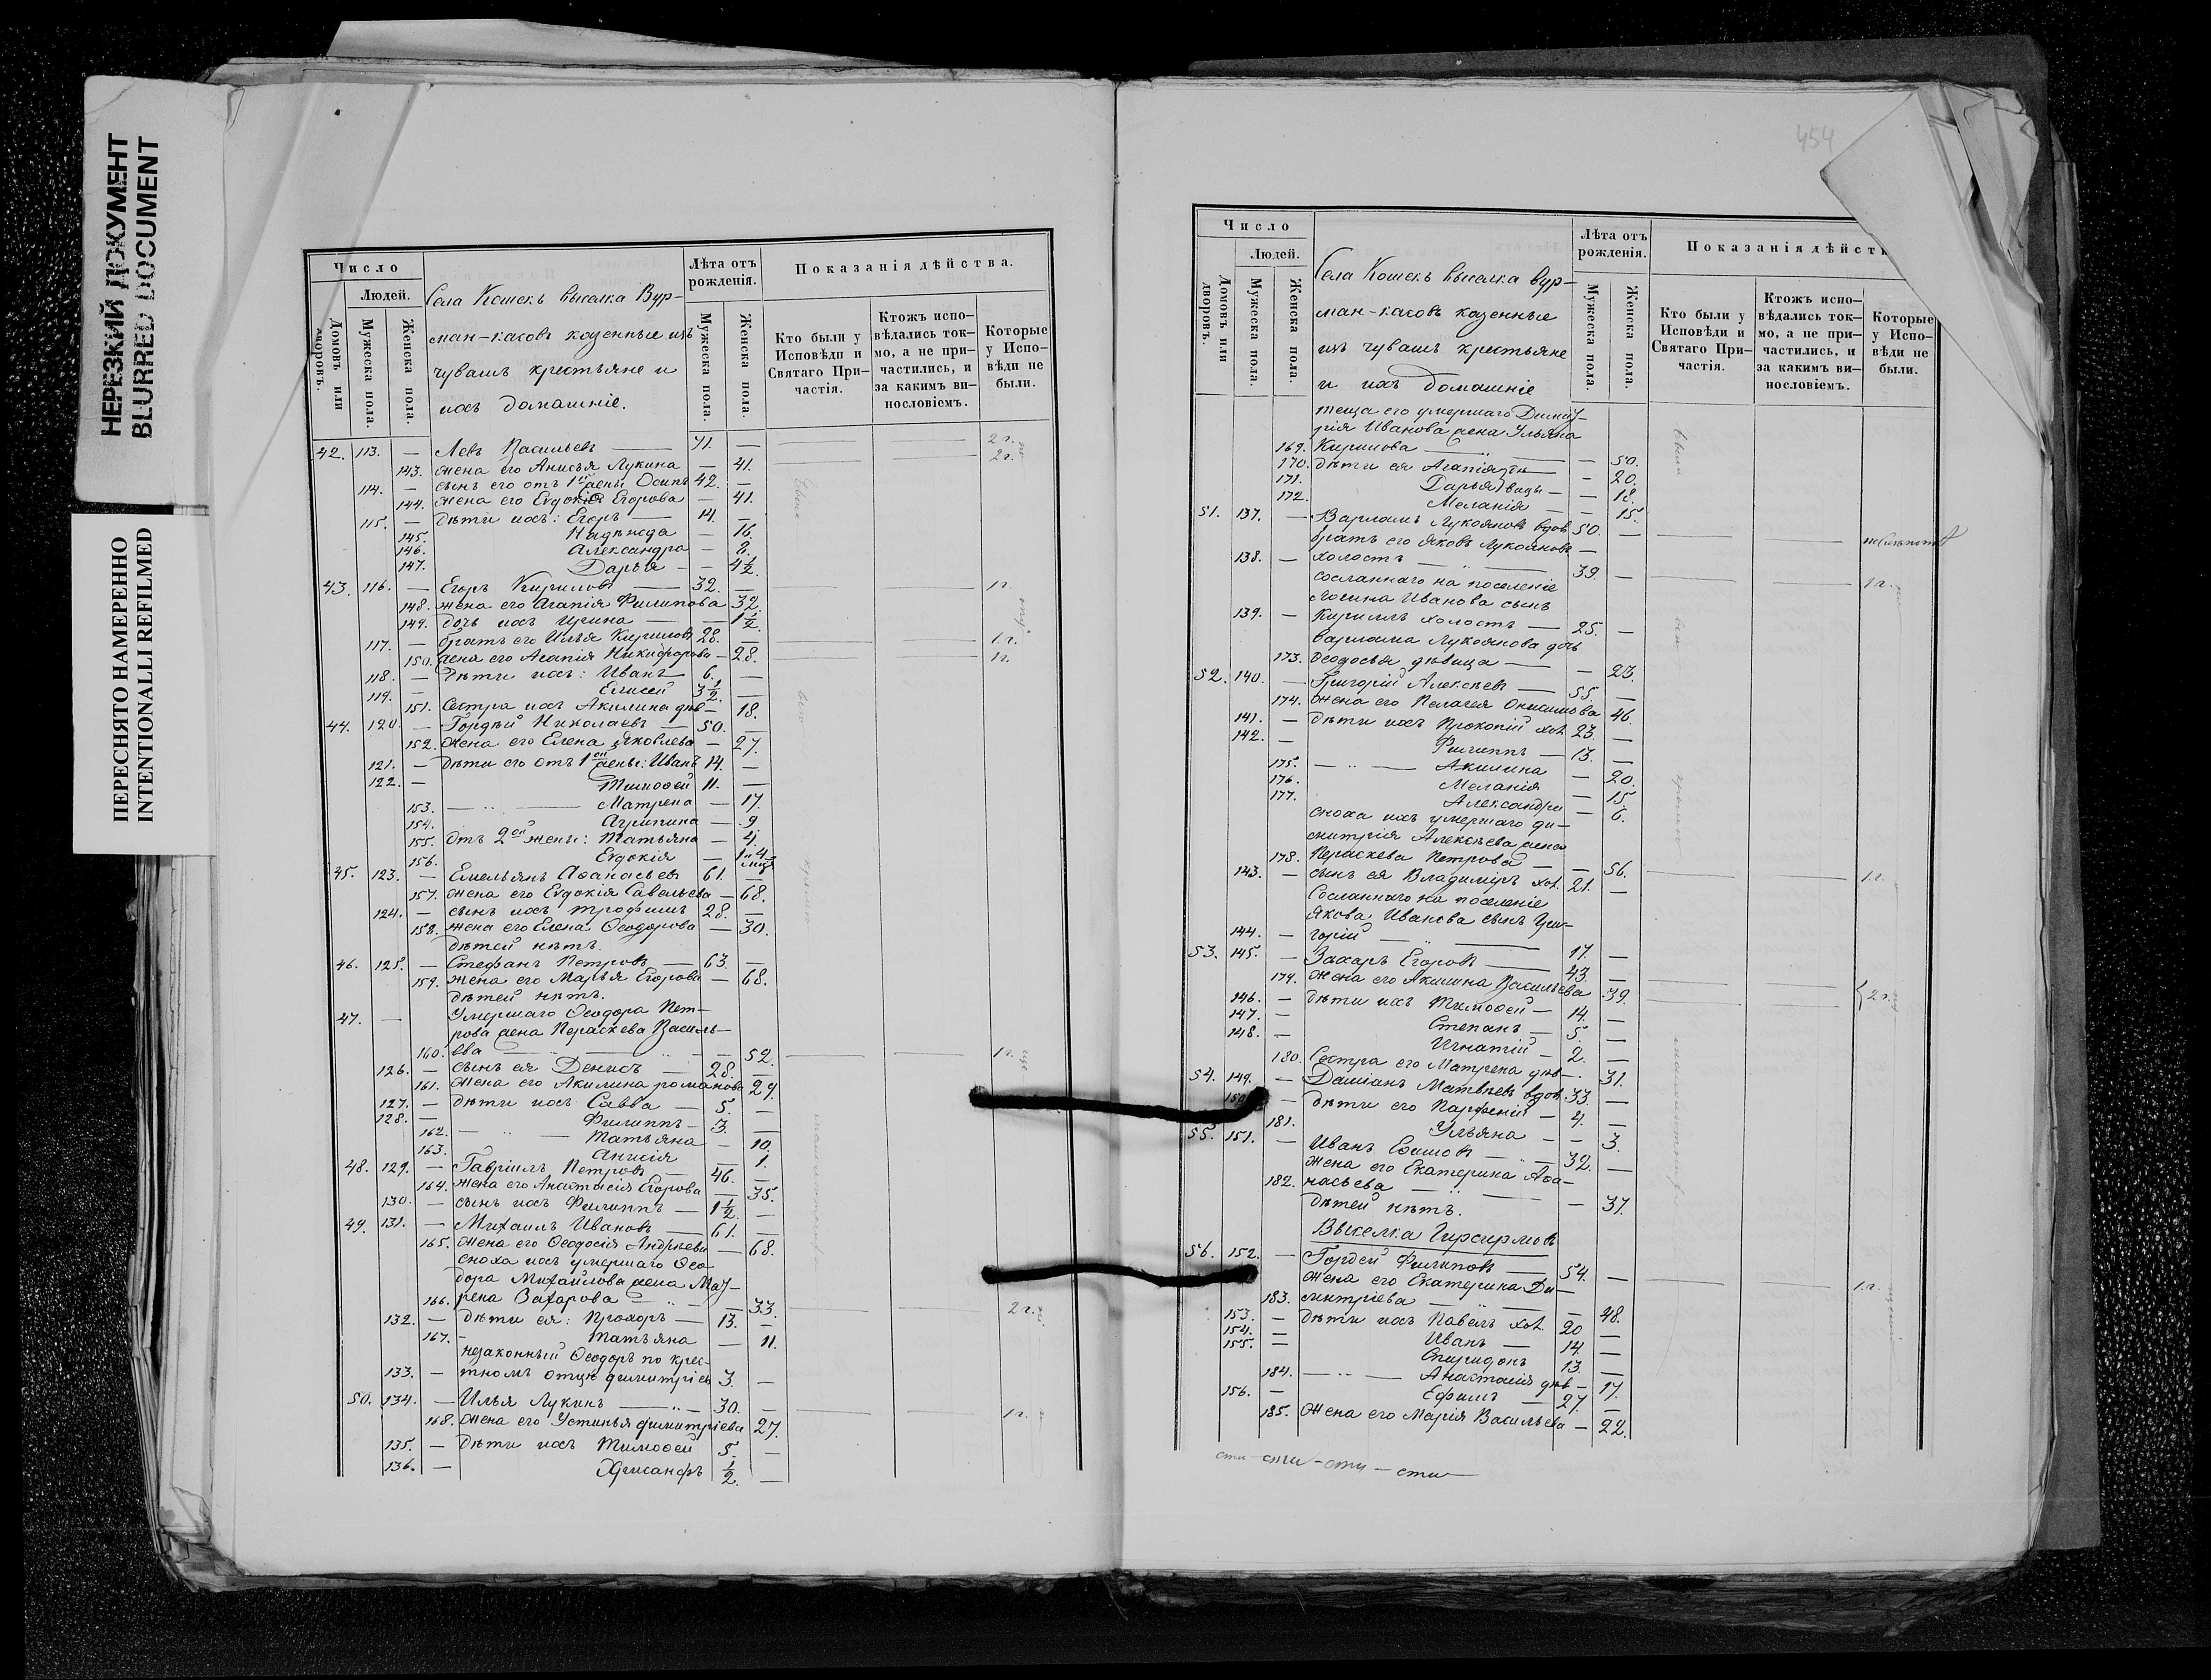 НЕРЕЗКИЙ ДОКУМЕНТ
BLURRED DOCUMENT
ПЕРЕСНЯТО НАМЕРЕННО
INTENTIONALLI REFILMED
Число
Людей.
Домовъ или дворовъ.
Мужеска пола.
Женска пола.
Села Кошекъ выселка Вур-
ман-касовъ казенные изъ
чувашъ крестьяне и
ихъ домашніе.
Лѣта отъ рожденія.
Мужеска пола.
Женска пола.
Показанія дѣйства.
Кто были у Исповѣди и Святаго Причастія.
Ктожъ исповѣдались токмо, а не причастились, и за какимъ винословіемъ.
Которые у Исповѣди не были.
42. 113. — Левъ Васильевъ — 71. — 2 г.
143. жена его Анисья Лукина — 41. 2 г.
114. — сынъ его отъ 1й жены Осипъ 42. —
144. жена его Евдокія Егорова — 41.
115. — дѣти ихъ: Егоръ — 14. —
145. Надѣжда — 16.
146. Александра — 8.
147. Дарья — 4½.
43. 116. — Егоръ Кириловъ — 32. — 1 г.
148. жена его Агапія Филипова 32.
149. дочь ихъ Ирина — 1½.
117. — братъ его Илья Кириловъ 28. — 1 г.
150. жена его Агапія Никифорова — 28. 1 г.
118. — Дѣти ихъ: Иванъ 6. —
119. — Елисей 3½. —
151. Сестра ихъ Акилина дѣв — 18.
44. 120. — Гордѣй Николаевъ — 50. —
152. жена его Елена Яковлева — 27.
121. — дѣти его отъ 1ой жены: Иванъ 14. —
122. — Тимоѳей 11. —
153. — Матрена — 17.
154. Агрипина — 9.
155. Отъ 2ой жены: Татьяна — 4.
156. Евдокія —
45. 123. — Емельянъ Аѳанасьевъ 61. —
157. жена его Евдокія Савельева — 68.
124. — сынъ ихъ Трофимъ 28. —
158. жена его Елена Ѳеодорова — 30.
дѣтей нѣтъ.
46. 125. — Стефанъ Петровъ — 63. —
159. жена его Марья Егорова — 68.
дѣтей нѣтъ.
47. — Умершаго Ѳеодора Пет-
рова жена Параскева Василь-
160. ева — 52. 1 г.
126. — сынъ ея Денисъ — 28. —
161. жена его Акилина романова 29.
127. — дѣти ихъ Савва — 5. —
128. — Филиппъ — 3. —
162. — Татьяна — 10.
163. Анисія — 1.
48. 129. — Гавріилъ Петровъ — 46. —
164. жена его Анастасія Егорова — 35.
130. — сынъ ихъ Филиппъ — 1½. —
49. 131. — Михаилъ Ивановъ — 61. —
165. жена его Ѳеодосія Андрѣева — 68.
сноха ихъ умершаго Ѳео-
дора Михайлова жена Мат-
166. рена Захарова — 33. 2 г.
132. — дѣти ея: Прохоръ — 13. —
167. — Татьяна — 11.
незаконный Ѳеодоръ по крес-
133. — тномъ отцѣ димитріевъ 3. —
50. 134. — Илья Лукинъ — 30. — 1 г.
168. жена его Устинья димитріева 27.
135. — дѣти ихъ Тимоѳей 5. —
136. — Хрисанфъ ½. —
454
Число
Людей.
Домовъ или дворовъ.
Мужеска пола.
Женска пола.
Села Кошекъ выселка вур-
ман-касовъ казенные
изъ чувашъ крестьяне
и ихъ домашніе
Лѣта отъ рожденія.
Мужеска пола.
Женска пола.
Показанія дѣйст
Кто были у Исповѣди и Святаго Причастія.
Ктожъ исповѣдались токмо, а не причастились, и за какимъ винословіемъ.
Которые у Исповѣди не были.
теща его умершаго Димит-
рія Иванова жена Ульяна
169. Кирилова — 50.
170. дѣти ея Агапія — 20.
171. Дарья — 18.
172. Меланія — 15.
51. 137. — Варламъ Лукояновъ вдов 50. —
братъ его Яковъ Лукояновъ —
138. — холостъ — 39. — 1 г.
сосланнаго на поселеніе
Иванова сынъ
139. — Кириллъ холостъ — 25. —
варлама Лукоянова дочь
173. Ѳеодосья дѣвица — 23.
52. 140. — Григорій Алексѣевъ — 55. —
174. жена его Пелагея Онисимова 46.
141. — дѣти ихъ Прокопій хол. 23. —
142. — Филиппъ — 13. —
175. — Акилина — 20.
176. Меланія — 15.
177. Александра — 6.
сноха ихъ умершаго ди-
митрія Алексѣева жена
178. Параскева Петрова — 56.
143. — сынъ ея Владиміръ хол. 21. — 1 г.
Сосланнаго на поселеніе
Якова Иванова сынъ Гри-
144. — горій — 17. —
53. 145. — Захаръ Егоровъ — 43. —
179. жена его Акилина Васильева 39. 2 г.
146. — дѣти ихъ Тимоѳей — 14. —
147. — Степанъ — 5. —
148. — Игнатій — 2. —
180. Сестра его Матрена дѣв — 31.
54. 149. — Даміанъ Матвѣевъ вдов. 33. —
150. — дѣти его Парфеній — 4. —
181. Ульяна — 3.
55. 151. — Иванъ Ефимовъ — 32. —
жена его Екатерина Аѳа-
182. насьева — 37.
дѣтей нѣтъ.
Выселка Гирсирмовъ
56. 152. — Гордей Филиповъ — 54. — 1 г.
жена его Екатерина Ди-
183. митріева — 48.
153. — дѣти ихъ Павелъ хол. 20 —
154. — Иванъ — 14. —
155. — Спиридонъ 13. —
184. — Анастасія дѣв — 17.
156. — Ефимъ — 27. —
185. жена его Марія Васильева — 22.
сти — сти — сти — сти